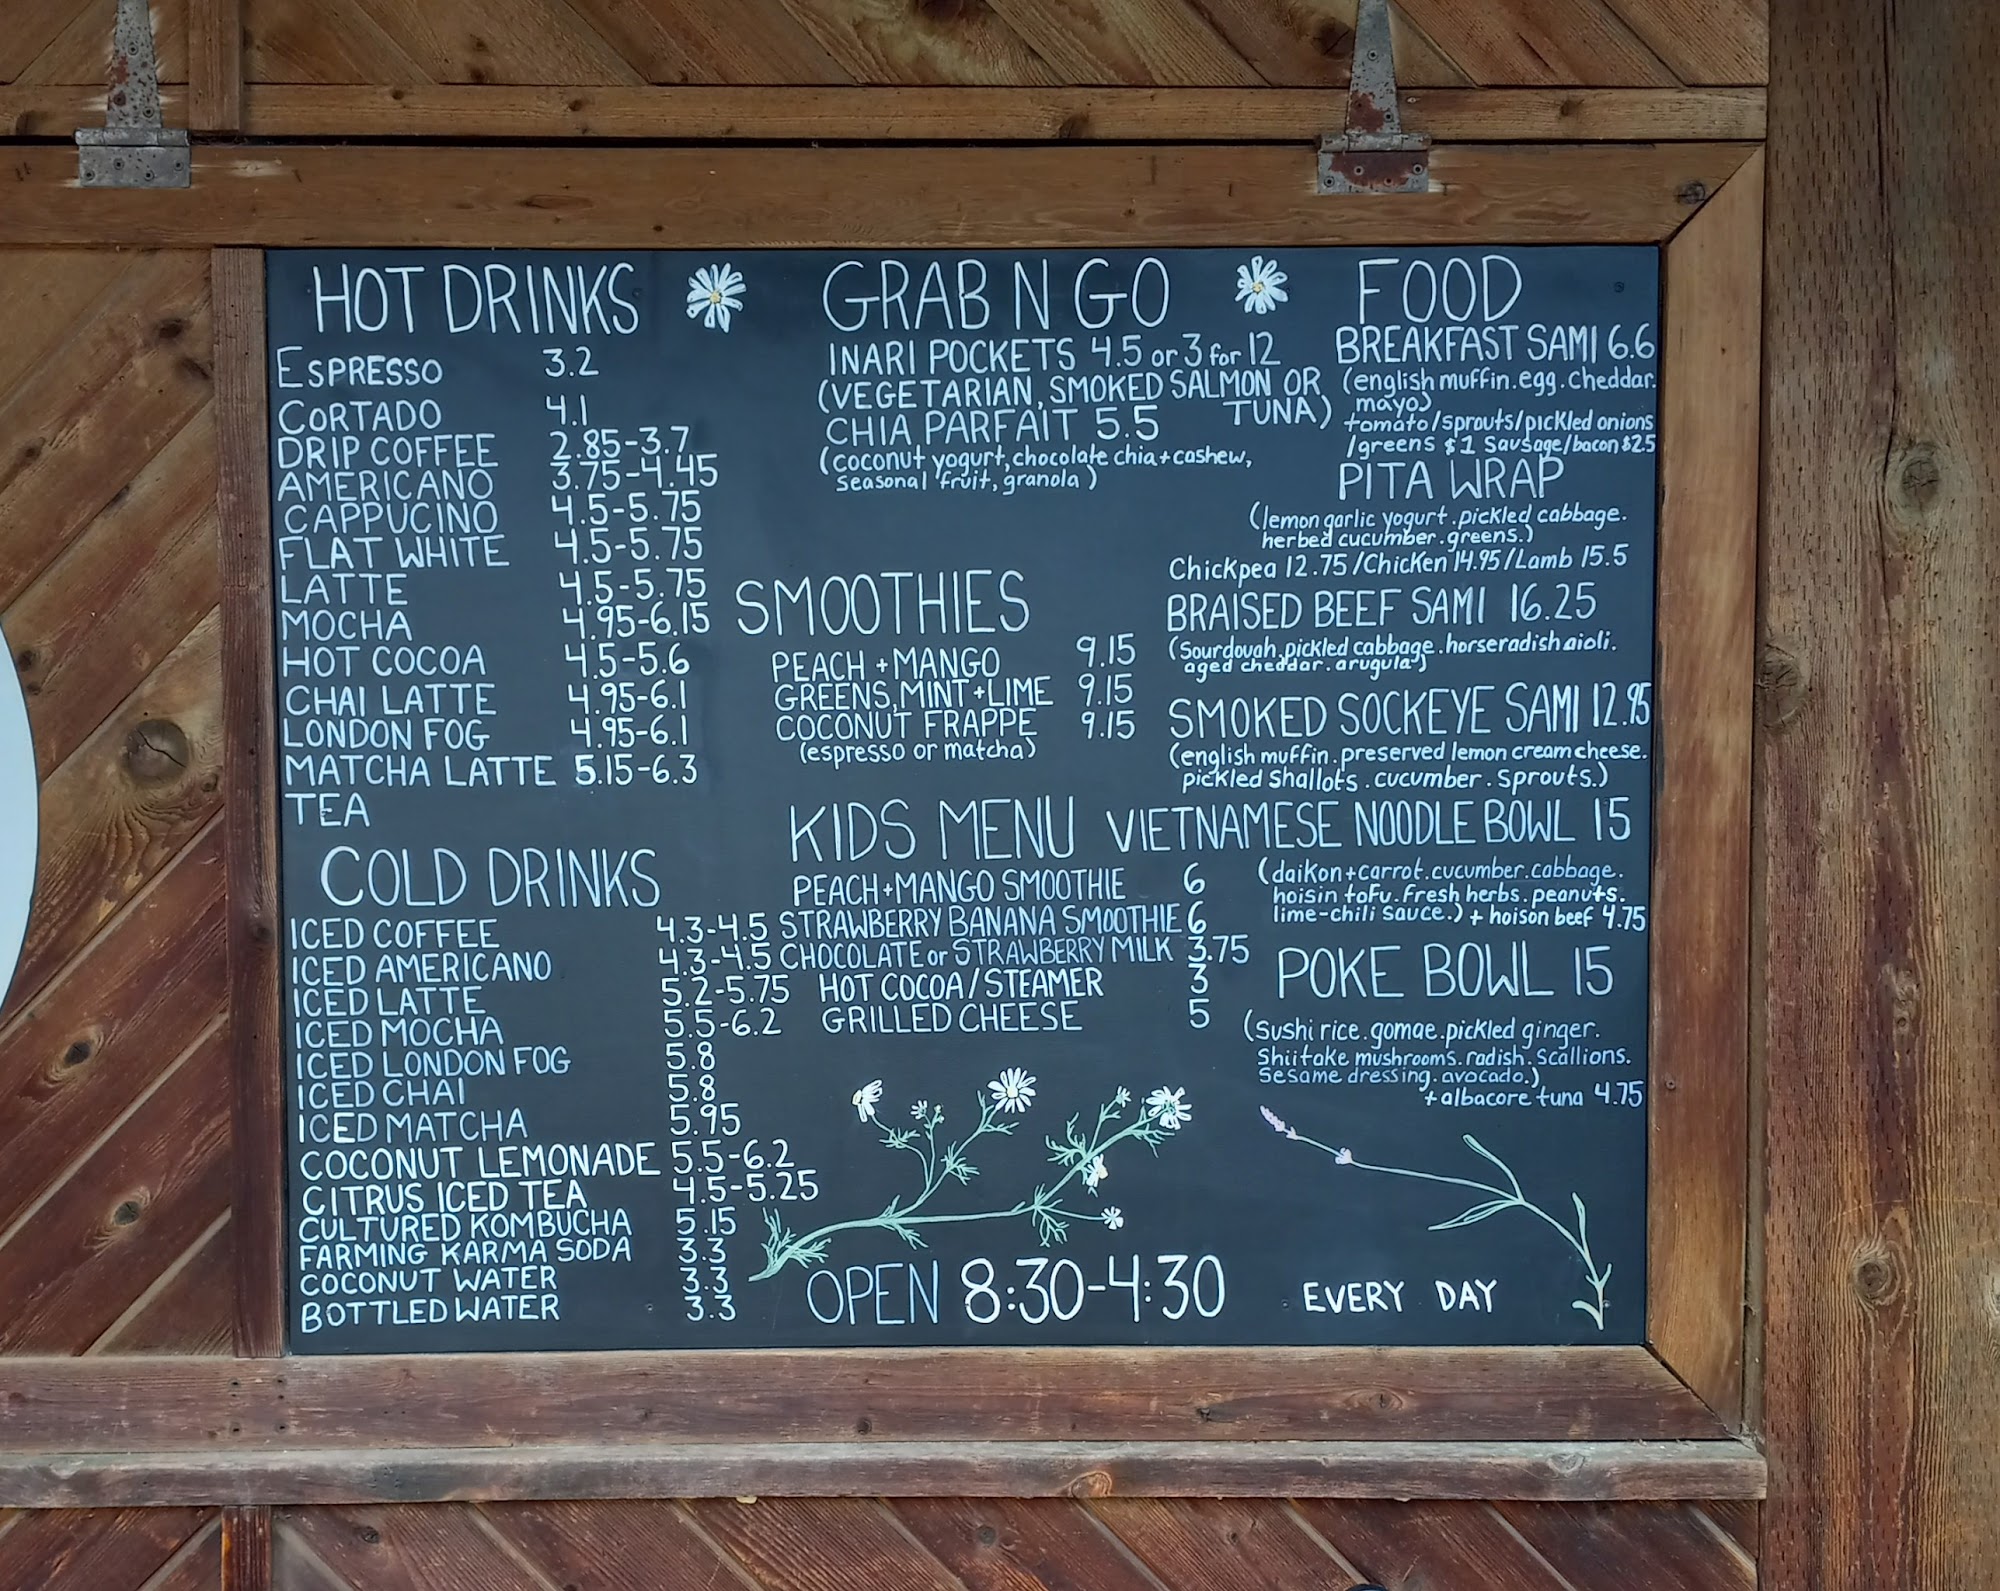 HOT DRINKS
ESPRESSO 3.2
CORTADO 4.1
DRIP COFFEE 2.85-3.7
AMERICANO 3.75-4.45
CAPPUCINO 4.5-5.75
FLAT WHITE 4.5-5.75
LATTE 4.5-5.75
MOCHA 4.95-6.15
HOT COCOA 4.5-5.6
CHAI LATTE 4.95-6.1
LONDON FOG 4.95-6.1
MATCHA LATTE 5.15-6.3
TEA
COLD DRINKS
ICED COFFEE 4.3-4.5
ICED AMERICANO 4.3-4.5
ICED LATTE 5.2-5.75
ICED MOCHA 5.5-6.2
ICED LONDON FOG 5.8
ICED CHAI 5.8
ICED MATCHA 5.95
COCONUT LEMONADE 5.5-6.2
CITRUS ICED TEA 4.5-5.25
CULTURED KOMBUCHA 5.15
FARMING KARMA SODA 3.3
COCONUT WATER 3.3
BOTTLED WATER 3.3
GRAB N GO
INARI POCKETS 4.5 or 3 for 12
(VEGETARIAN, SMOKED SALMON OR
TUNA)
CHIA PARFAIT 5.5
(coconut yogurt, chocolate chia+cashew,
seasonal fruit, granola)
SMOOTHIES
PEACH + MANGO 9.15
GREENS, MINT + LIME 9.15
COCONUT FRAPPE 9.15
(espresso or matcha)
KIDS MENU
PEACH+MANGO SMOOTHIE 6
STRAWBERRY BANANA SMOOTHIE 6
CHOCOLATE or STRAWBERRY MILK 3.75
HOT COCOA/STEAMER 3
GRILLED CHEESE 5
FOOD
BREAKFAST SAMI 6.6
(english muffin.egg.cheddar.
mayo)
tomato/sprouts/pickled onions
/greens $1 Sausage/bacon $2.5
PITA WRAP
(lemon garlic yogurt.pickled cabbage.
herbed cucumber.greens.)
Chickpea 12.75/Chicken 14.95/Lamb 15.5
BRAISED BEEF SAMI 16.25
(Sourdough.pickled cabbage.horseradish aioli.
aged cheddar.arugula)
SMOKED SOCKEYE SAMI 12.95
(english muffin.preserved lemon cream cheese.
pickled Shallots.cucumber.sprouts.)
VIETNAMESE NOODLE BOWL 15
(daikon+carrot.cucumber.cabbage.
hoisin tofu.fresh herbs.peanuts.
lime-chili sauce.) + hoison beef 4.75
POKE BOWL 15
(Sushi rice.gomae.pickled ginger.
Shiitake mushrooms.radish.Scallions.
Sesame dressing.avocado.)
+ albacore tuna 4.75
OPEN 8:30-4:30 EVERY DAY